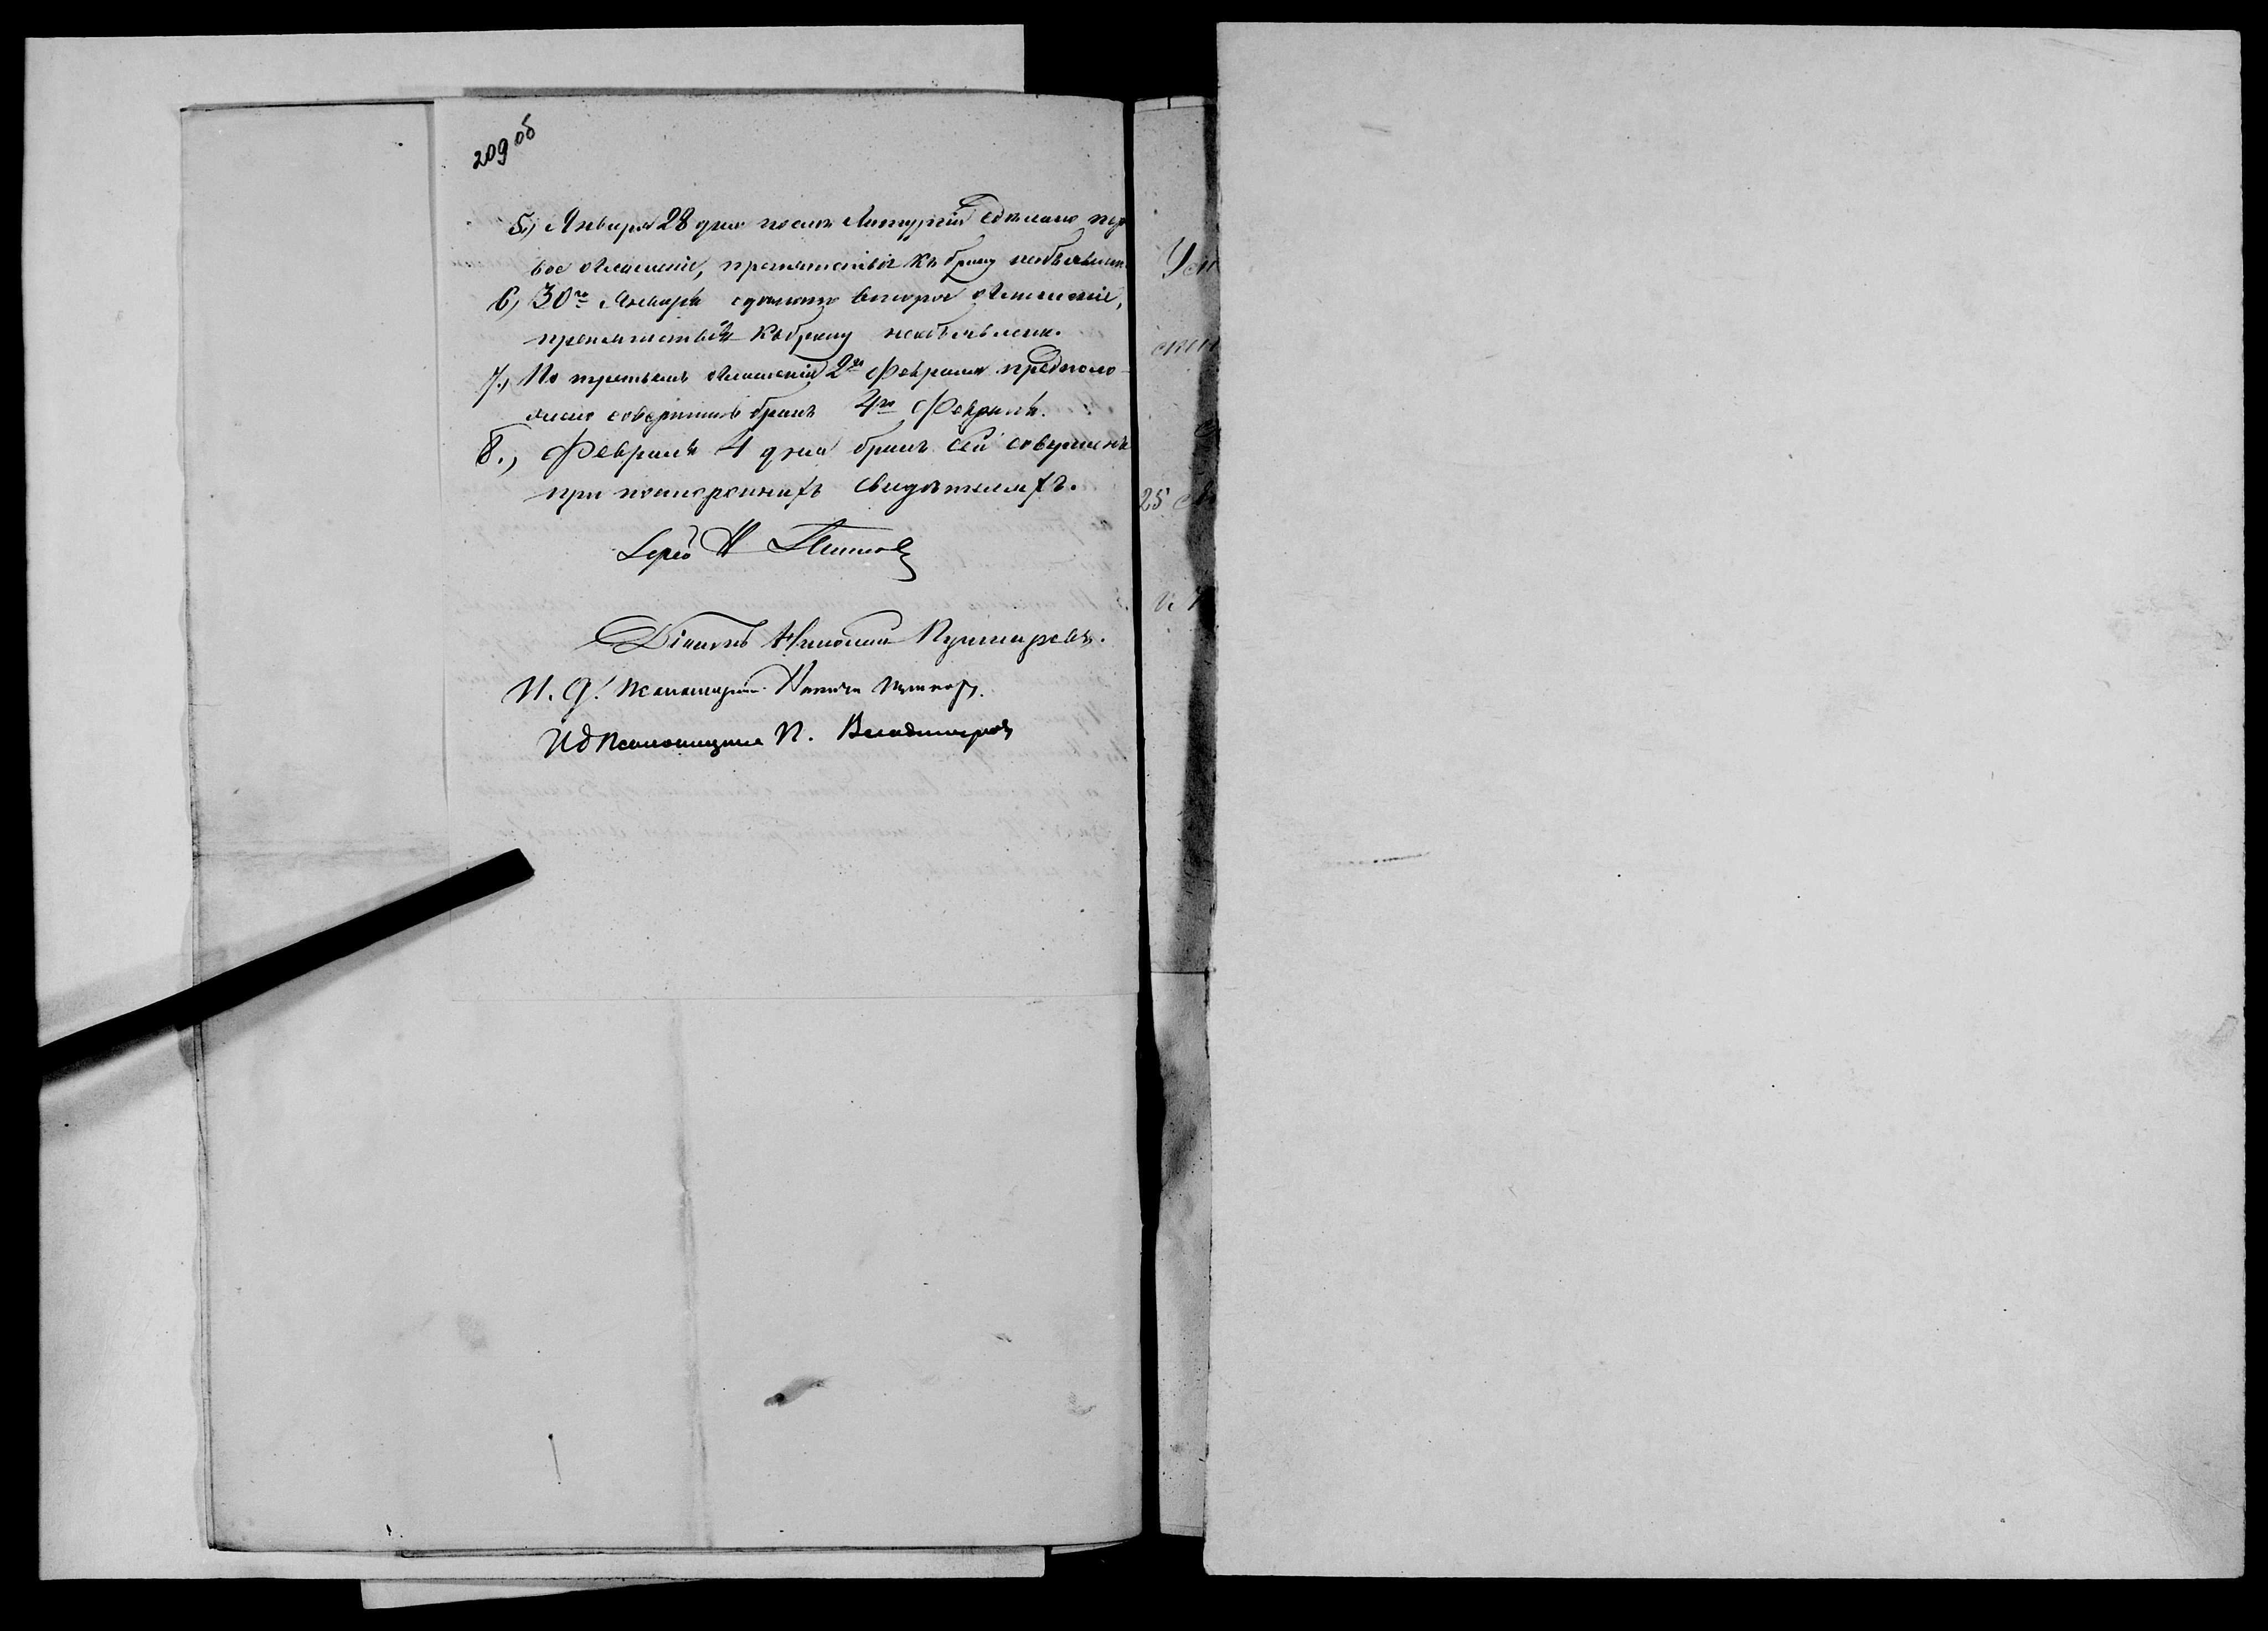 209 об
5.) Января 28 дня послѣ Литургіи сдѣлано пер
вое оглашеніе, препятствія къ браку необъявлен
6) 30го Января сдѣлано второе оглашеніе,
препятствія къ браку необъявлено.
7.) По третьемъ оглашеніи 2го Февраля предполо-
жено совершить бракъ 4го Февраля.
8.) Февраля 4 дня бракъ сей совершенъ
при постороннихъ свидѣтеляхъ.
Іерей Н
Діаконъ Николай Пушкаревъ.
И. д. псаломщика
Ид Псаломщика П. Владимировъ
25